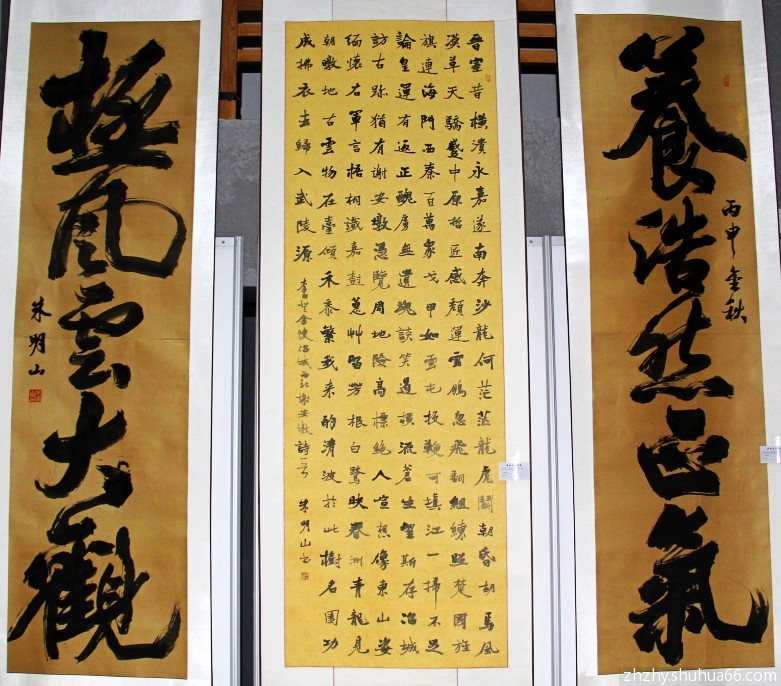 養浩然正氣
丙申金秋
晉室昔橫潰永嘉遂南奔沙龍何茫茫龍虎鬭朝昏胡馬風
漢草天驕蹙中原哲匠感頹運雲鵬忽飛翻組練照楚國旌
旗連海門西秦百萬家戈甲如雲屯投鞭可填江一掃不足
論皇運有返正醜虜無遺魂談笑遏橫流蒼生望斯存冶城
訪古跡猶有謝安墩憑覽周地險高標絕人宣想像東山姿
緬懷右軍言梧桐識嘉蕙艸留芳根白鷺映春洲青龍見
朝暾地古雲物在臺傾禾黍繁我來酌清波於此樹名園功
成拂衣去歸入武陵源
李白登金陵冶城西北謝安墩詩一首 朱明山書
極風雲大觀
朱明山
zhzhy.shuhua66.com